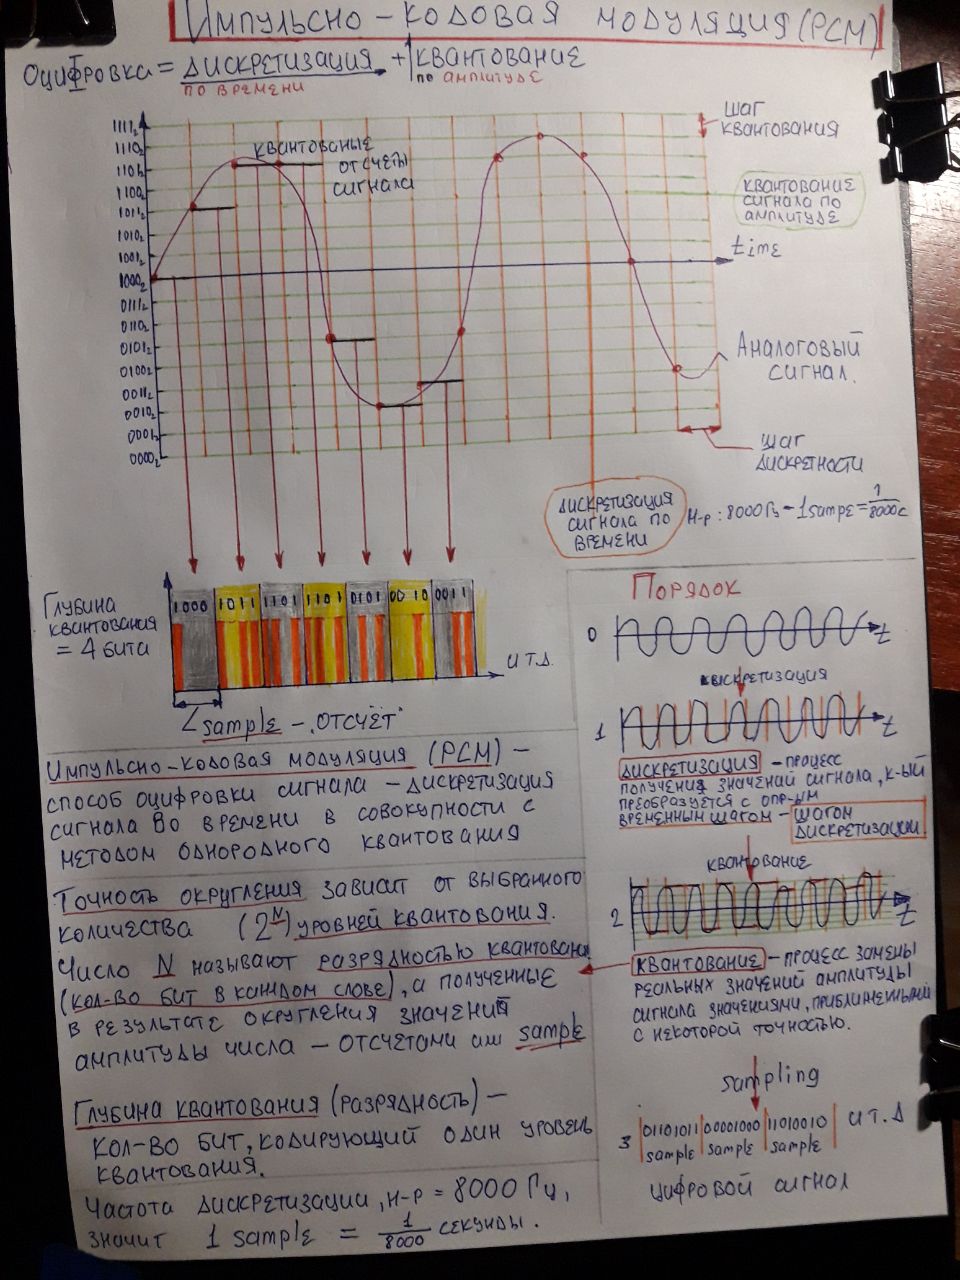 Импульсно-кодовая модуляция (PCM)
Оцифровка = дискретизация + квантование
по времени
по амплитуде
1111₂
1110₂
1101₂
1100₂
1011₂
1010₂
1001₂
1000₂
0111₂
0110₂
0101₂
0100₂
0011₂
0010₂
0001₂
0000₂
квантованые
отсчеты
сигнала
шаг
квантования
квантование
сигнала по
амплитуде
time
Аналоговый
сигнал.
шаг
дискретности
дискретизация
сигнала по
времени
н-р: 8000 Гц - 1 sample = 1/8000 с
Глубина
квантования
= 4 бита
1000 1011 1101 1101 0101 0010 0011
и т.д.
sample - "отсчёт"
Импульсно-кодовая модуляция (PCM) -
способ оцифровки сигнала - дискретизация
сигнала во времени в совокупности с
методом однородного квантования
Точность округления зависит от выбранного
количества (2ᴺ) уровней квантования.
Число N называют разрядностью квантовани
(кол-во бит в каждом слове), а полученные
в результате округления значений
амплитуды числа - отсчетами или sample
Глубина квантования (разрядность) -
кол-во бит, кодирующий один уровень
квантования.
Частота дискретизации, н-р = 8000 Гц,
значит 1 sample = 1/8000 секунды.
Порядок
0
t
1
t
дискретизация - процесс
получения значений сигнала, к-ый
преобразуется с опр-ым
временным шагом - шагом
дискретизации
квантование
2
t
квантование - процесс замены
реальных значений амплитуды
сигнала значениями, приближенными
с некоторой точностью.
sampling
3 |01101011|00001000|11010010| и т.д
sample sample sample
цифровой сигнал